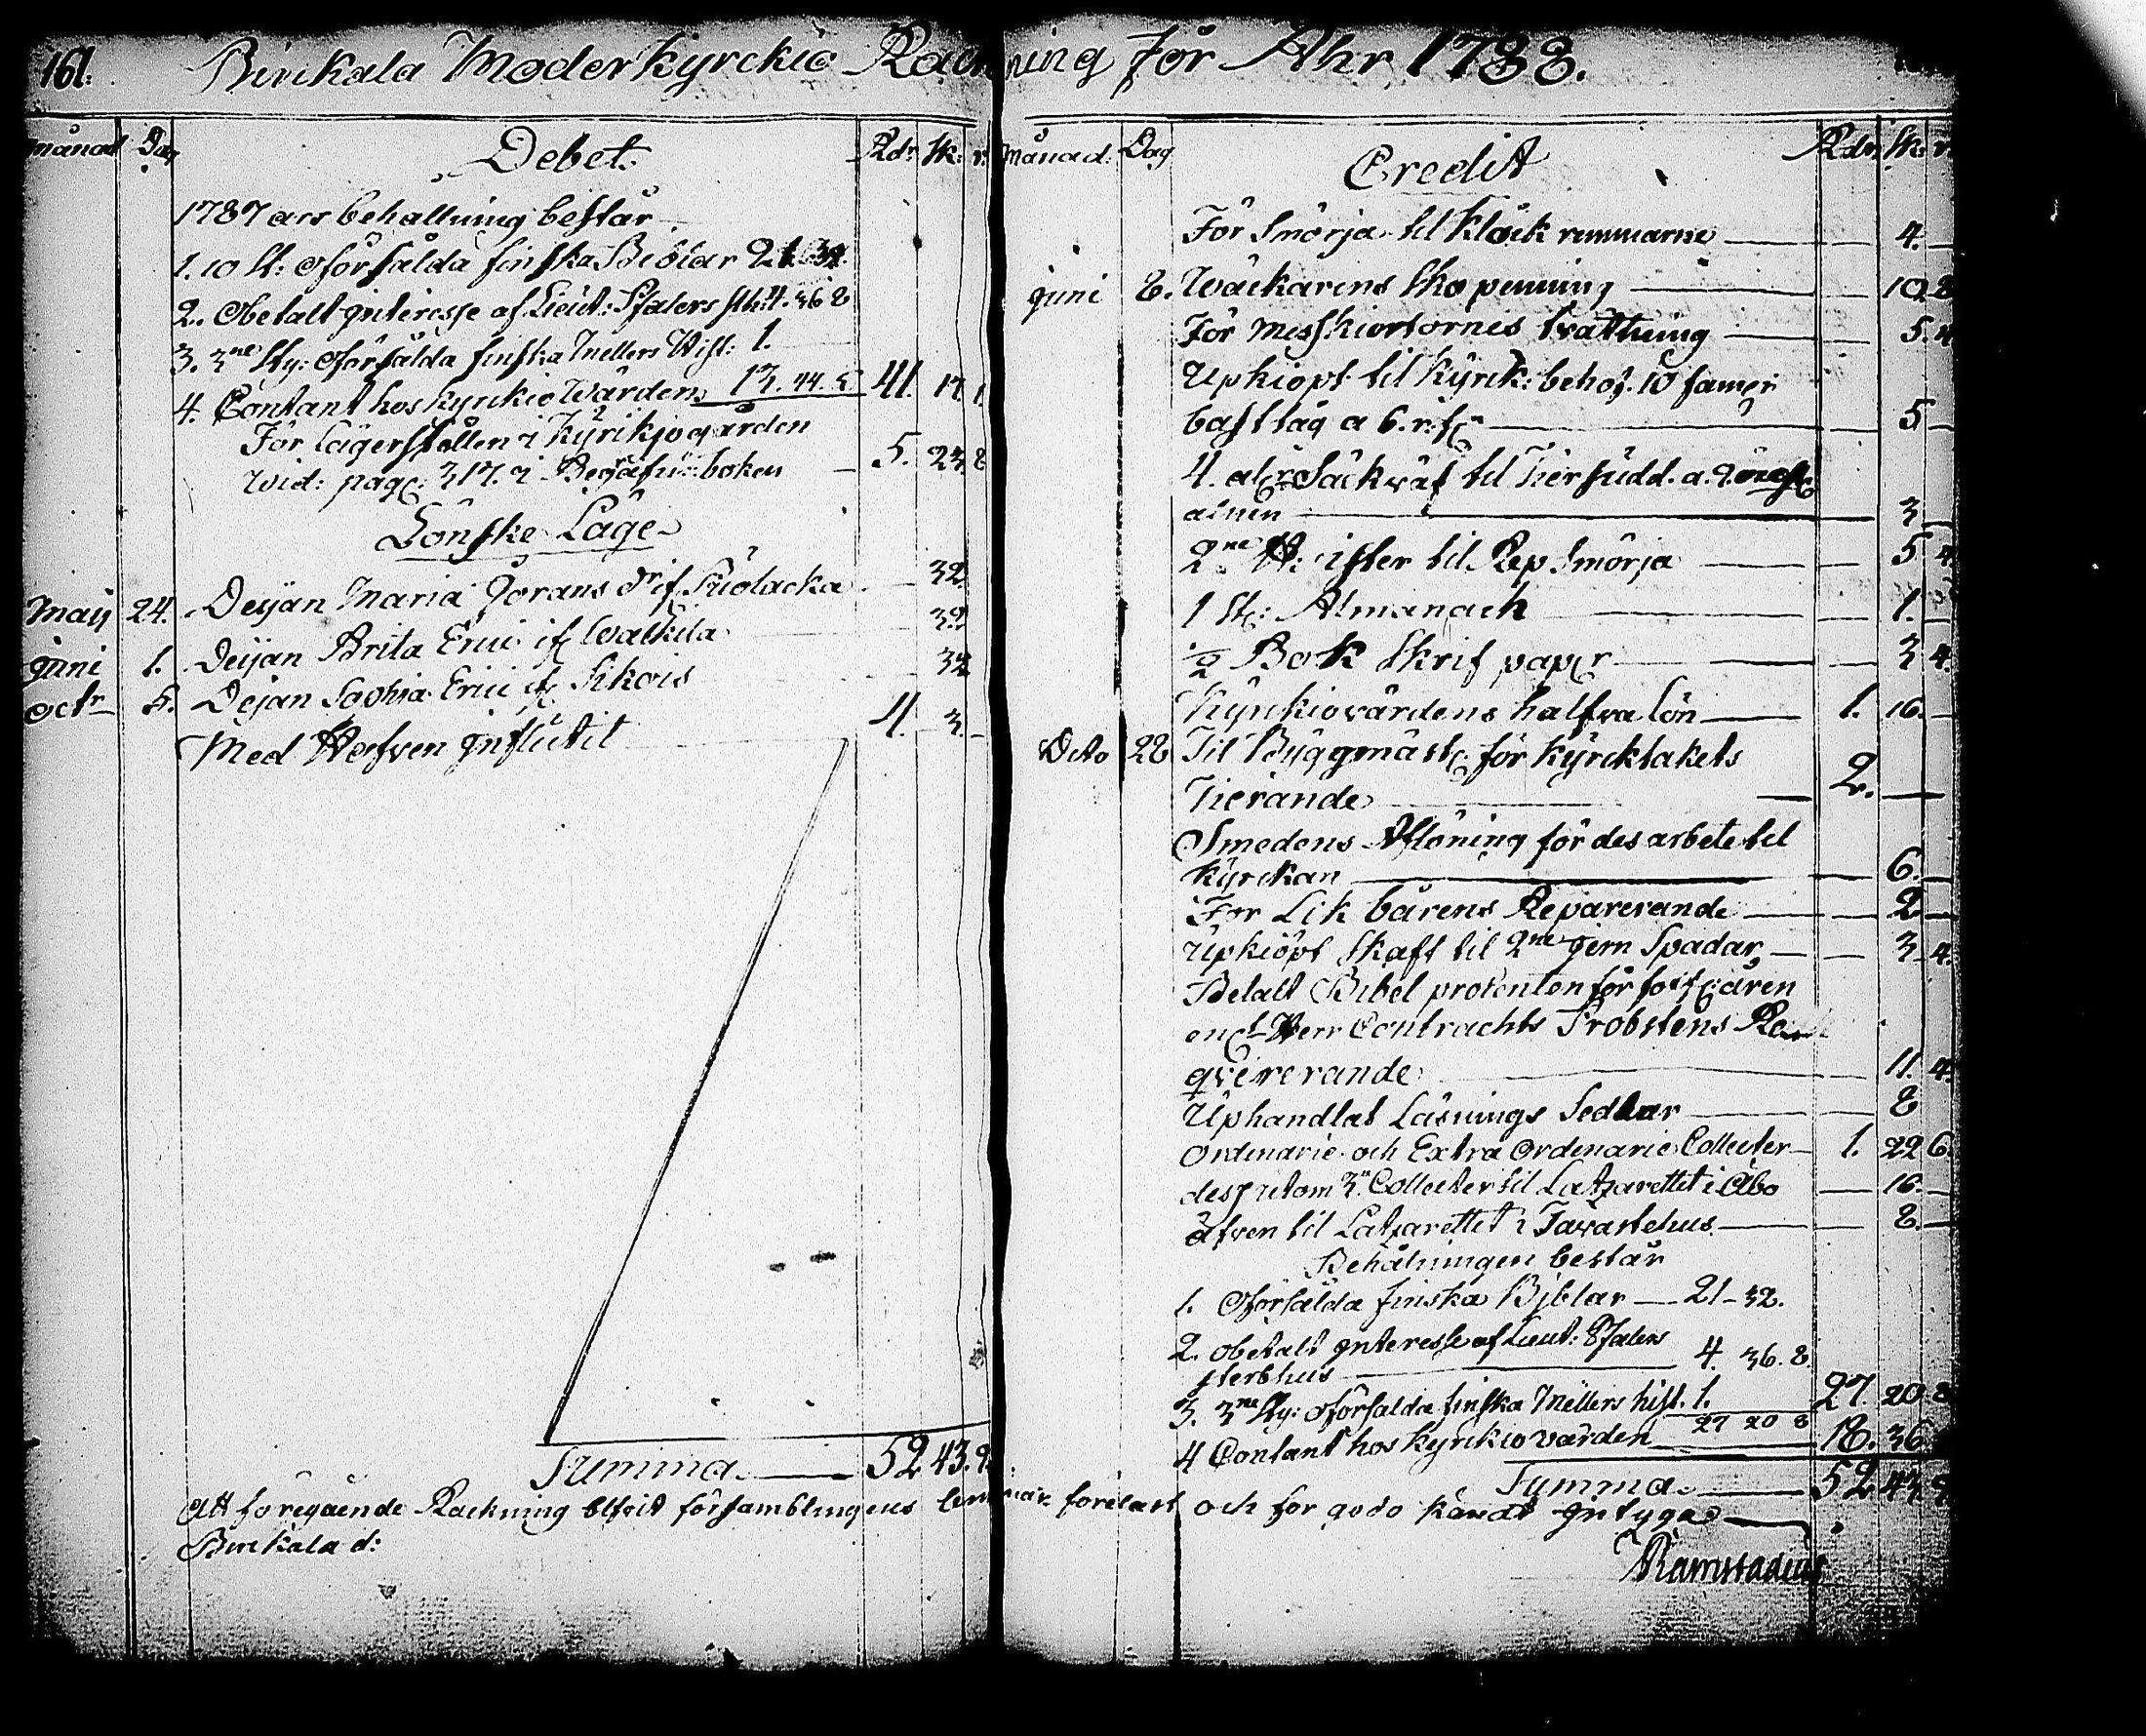 161.
Birckala Moder Kyrckio Räckning för Åhr 1788.
Månad Dag Debet. Rdr sk: r:
1787 års behållning består
1. 10 st: oförsålda finska Biblar 21. 32.
2. Obetalt Interesse af Lieut: Stålers stbh: 4. 36 8
3. 3ne sty: oförsålda finska Mellers Hist: 1.
4. Contant hos kyrkio Wärden 13. 44. 5. 41. 17. 1.
För lägerställen i Kyrkjogården
wid: pag: 317. i Begrafn: boken — 5. 23 8
Lönske Läge
Maij 24. Deijan Maria Jörans dr if Suolacka — 32
Juni 1. Deijan Brita Erici if Walkila 32
Octr 5. Dejan Sophia Erici if Sikois 32
Med Håfven Influtit 4. 3. —
Summa — 52 43. 9.
Månad: Dag Credit Rdr sk: r.
För Smörja til Klåck remmarne — 4. —
Juni 8. Wäckarens Sko penning — 10 8
För Messkiortornes tvättning — 5. 4
Upkiöpt til Kyrck: behof. 10 famnar
basttåg a 6. r: st — 5 —
4. al: Säckväf til Tiersudd. a. 9.
alnen — 3 —
2ne ℔: ister til Rep Smörja — 5 4.
1 st: Almanach — 1. —
½ Bok Skrif paper — 3 4.
Kyrckiovärdens halfva lön — 1. 16. —
Octo 28 Til Byggmäst: för kyrcktakets
Tierande — 2. —
Smedens Aflöning för des arbete til
Kyrckan — 6. —
För Lik bårens Reparerande — 2 —
Upkiöpt Skaft til 2ne Jern Spadar, — 3 4.
Betalt Bibel procenten för åren
enl: Herr Contrachts Probstens
qvirerande 11. 4.
Uphandlat Läsnings Sedlar — 8
Ordinarie och Extra Ordinarie Collecter — 1. 22 6.
desutom 3n Collecter til Latzarettet i Åbo — 16. —
äfven til Latzarettet i Tavastehus — 8. —
Behålningen består
1. Oförsålda finska Biblar — 21 — 32.
2. obetalt Interesse af Lieut: Stålers
sterbhus — 4. 36. 8.
3. 3ne sty: oförsålda finska Mellers hist. 1. 27. 20 8
27 20 8
4 Contant hos kyrckio värden — 18. 36.
Summa — 52 43 9
Att föregående Räckning blifvit församblingens ledamöter föreläst och för godo kändt Intygas —
Birckala d:
Ramstadius